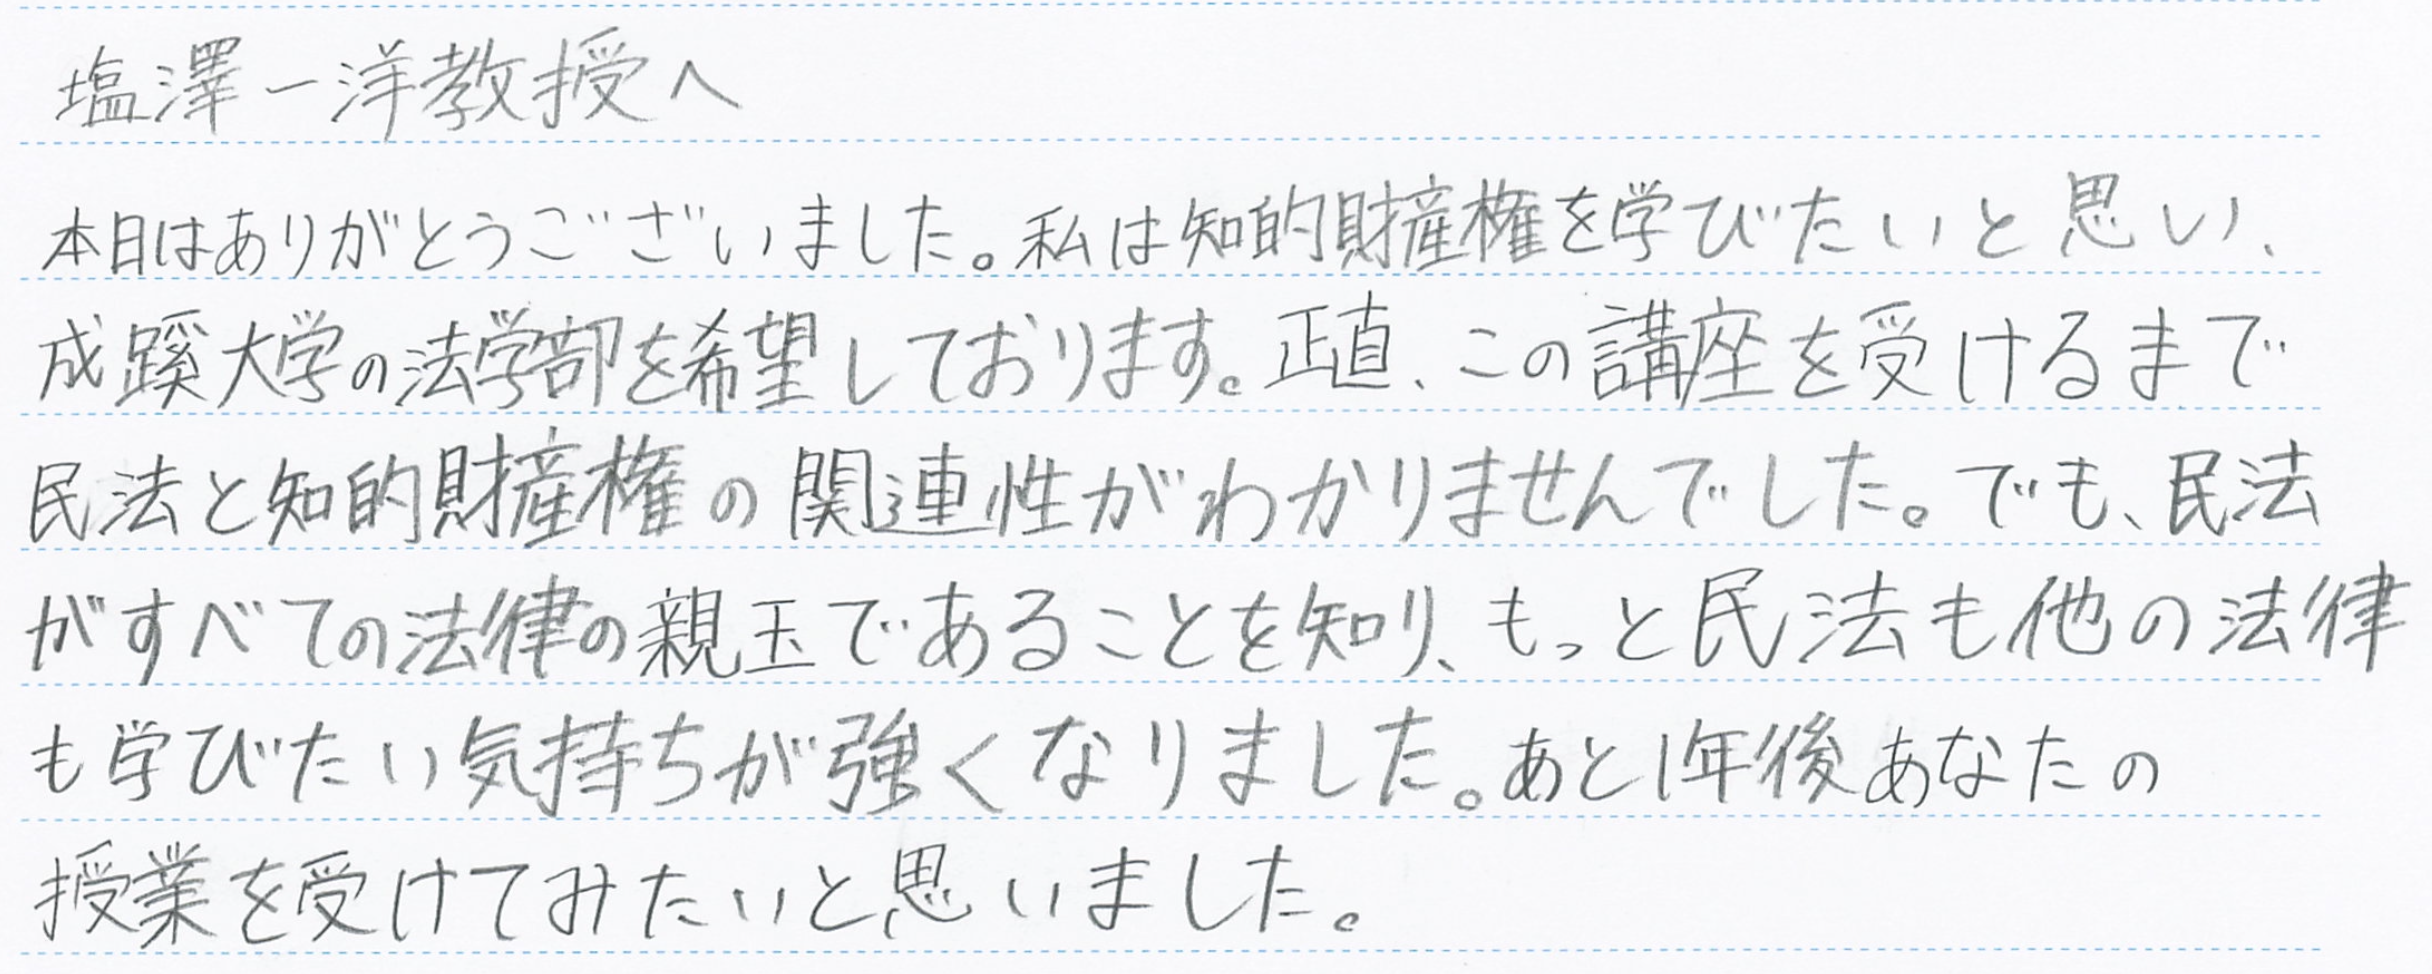 塩澤一洋教授へ
本日はありがとうございました。私は知的財産権を学びたいと思い、
成蹊大学の法学部を希望しております。正直、この講座を受けるまで
民法と知的財産権の関連性がわかりませんでした。でも、民法
がすべての法律の親玉であることを知り、もっと民法も他の法律
も学びたい気持ちが強くなりました。あと1年後あなたの
授業を受けてみたいと思いました。